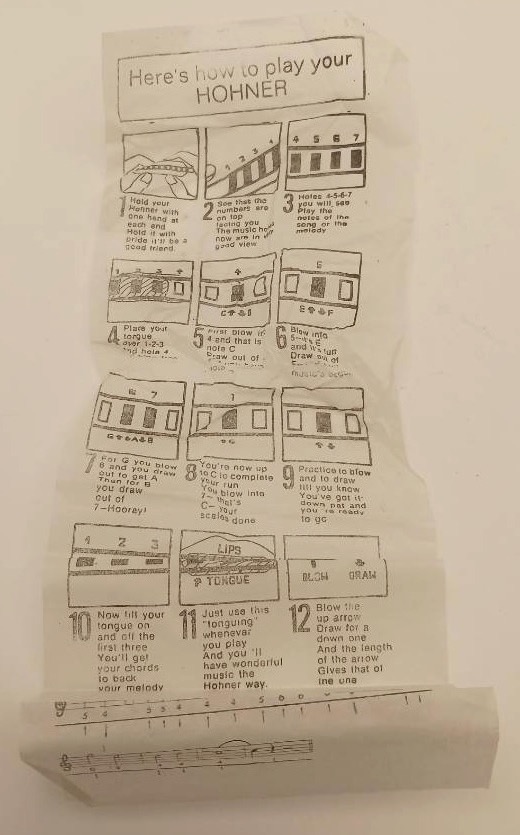 Here's how to play your
HOHNER
1 2 3 4
4 5 6 7
1
Hold your
Hohner with
one hand at
each end
Hold it with
pride it'll be a
good friend.
2
See that the
numbers are
on top
facing you
The music
now are in
good view
3
Holes 4-5-6-7
you will see
Play the
notes of the
song or the
melody
1 2 3 4
4
5
4
Place your
tongue
over 1-2-3
and hole 4
5
First blow
4 and that is
note C
Draw out of
6
Blow into
and
Draw out of
6 7
1
7
For G you blow
6 and you draw
out to get A
Then for B
you draw
out of
7-Hooray!
8
You're now up
to C to complete
your run
You blow into
7- that's
C- your
scales done
9
Practice to blow
and to draw
till you know
You've got it
down pat and
you're ready
to go
1 2 3
LIPS
TONGUE
BLOW DRAW
10
Now lift your
tongue on
and off the
first three
You'll get
your chords
to back
your melody
11
Just use this
"tonguing"
whenever
you play
And you'll
have wonderful
music the
Hohner way.
12
Blow the
up arrow
Draw for a
down one
And the length
of the arrow
Gives that of
the one